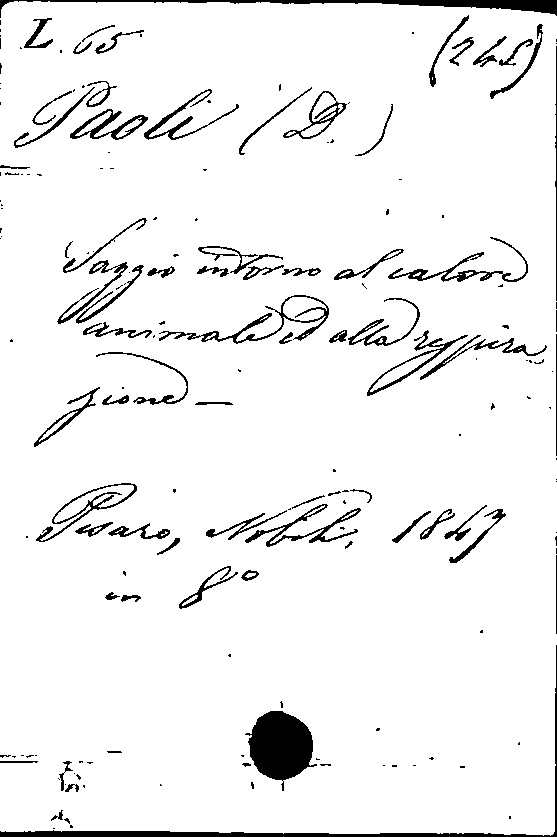 L. 65
Paoli (D.)
Saggio intorno al calore
animale ed alla respira
zione —
Pesaro, Nobili, 1847
in 8°